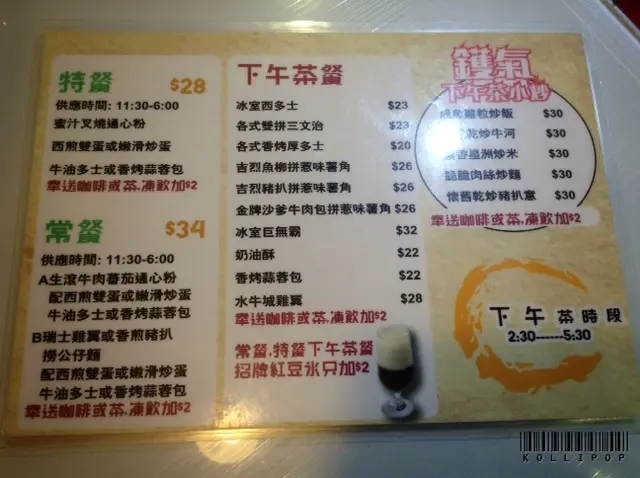 特餐 $28
供應時間: 11:30-6:00
蜜汁叉燒通心粉
西煎雙蛋或嫩滑炒蛋
牛油多士或香烤蒜蓉包
奉送咖啡或茶,凍飲加$2
常餐 $34
供應時間: 11:30-6:00
A生滾牛肉蕃茄通心粉
配西煎雙蛋或嫩滑炒蛋
牛油多士或香烤蒜蓉包
B瑞士雞翼或香煎豬扒
撈公仔麵
配西煎雙蛋或嫩滑炒蛋
牛油多士或香烤蒜蓉包
奉送咖啡或茶,凍飲加$2
下午茶餐
冰室西多士 $23
各式雙拼三文治 $23
各式香烤厚多士 $20
吉烈魚柳拼惹味薯角 $26
吉烈豬扒拼惹味薯角 $26
金牌沙爹牛肉包拼惹味薯角 $26
冰室巨無霸 $32
奶油酥 $22
香烤蒜蓉包 $22
水牛城雞翼 $28
奉送咖啡或茶,凍飲加$2
常餐,特餐下午茶餐
招牌紅豆冰只加$2
鑊氣
下午茶小炒
鹹魚雞粒炒飯 $30
乾炒牛河 $30
香星洲炒米 $30
脆脆肉絲炒麵 $30
懷舊乾炒豬扒意 $30
奉送咖啡或茶,凍飲加$2
下午茶時段
2:30------5:30
KOLLIPOP